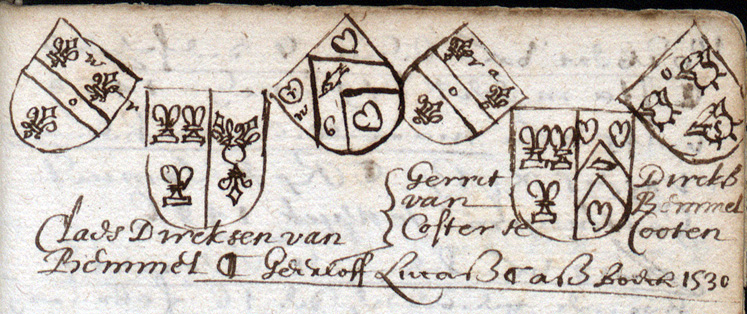 Claes Dircksen van
Bemmel & Geerloff Lucasß Caß Boeck 1530
Gerrit
van
Coster te
Dircks
Bemmel
Cooten